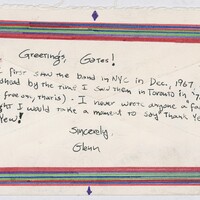 Greetings, Gates!
I first saw the band in NYC in Dec. 1967,
dhead by the time I saw them in Toronto in '7
free one, that is). I never wrote anyone a "fa
ght I would take a moment to say Thank Yo
You!
Sincerely,
Glenn